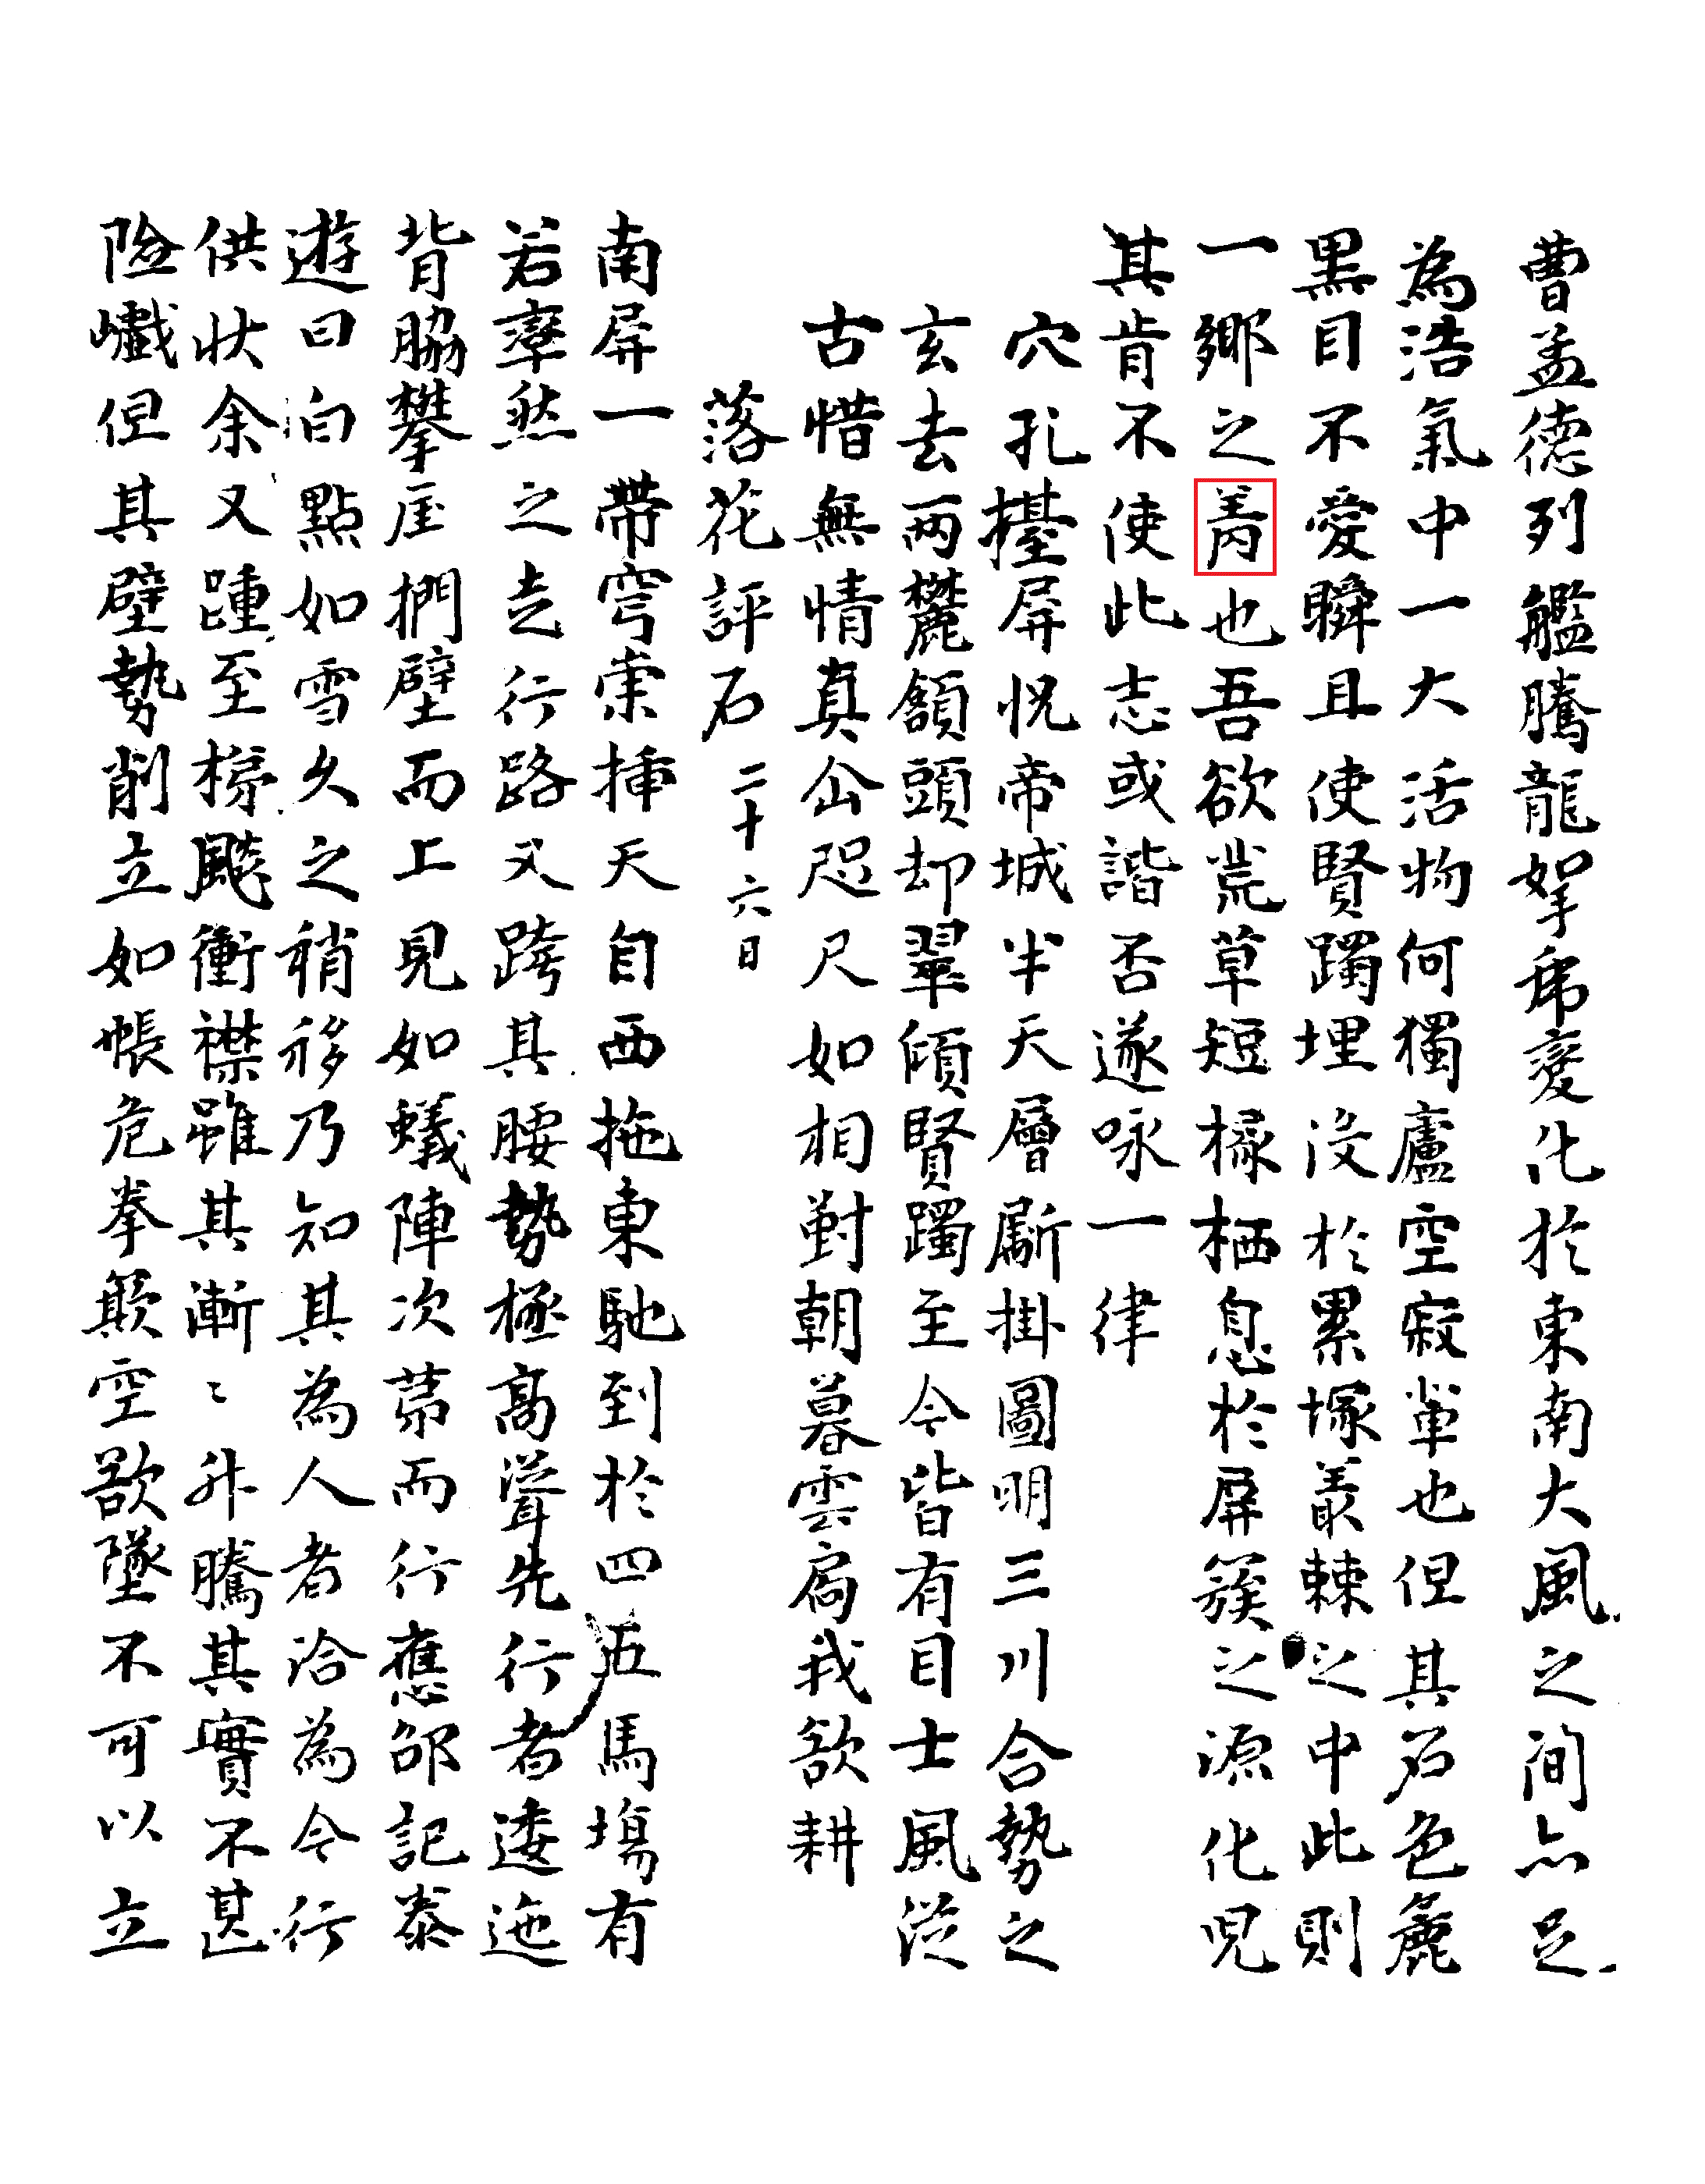 曹孟德列艦騰龍拏帋變化於東南大風之間亦足
為浩氣中一大活物何獨廬空寂輩也但其石色麁
黑目不愛瞬且使賢躅埋沒於累塚叢棘之中此則
一鄉之羞也吾欲荒草短椽栖息於屛簇之源化児
其肯不使此志或諧否遂咏一律
穴孔擡屛怳帝城半天層斸掛圖明三川合勢之
玄去兩麓頷頭却翠傾賢躅至今皆有目士風從
古惜無情真仚咫尺如相對朝暮雲扄我欲耕
落花評石二十六日
南屛一帶穹崇揷天自西拖東馳到於四五馬塲有
若犖然之走行路又跨其腰勢極高聳先行者逶迤
背脇攀崖捫壁而上見如蟻陣次苐而行應邵記泰
遊曰白點如雪久之稍移乃知其為人者洽為今行
供状余又踵至梯颷衝襟雖其漸〻升騰其實不甚
險巇但其壁勢削立如帳危拳欺空欲墜不可以立